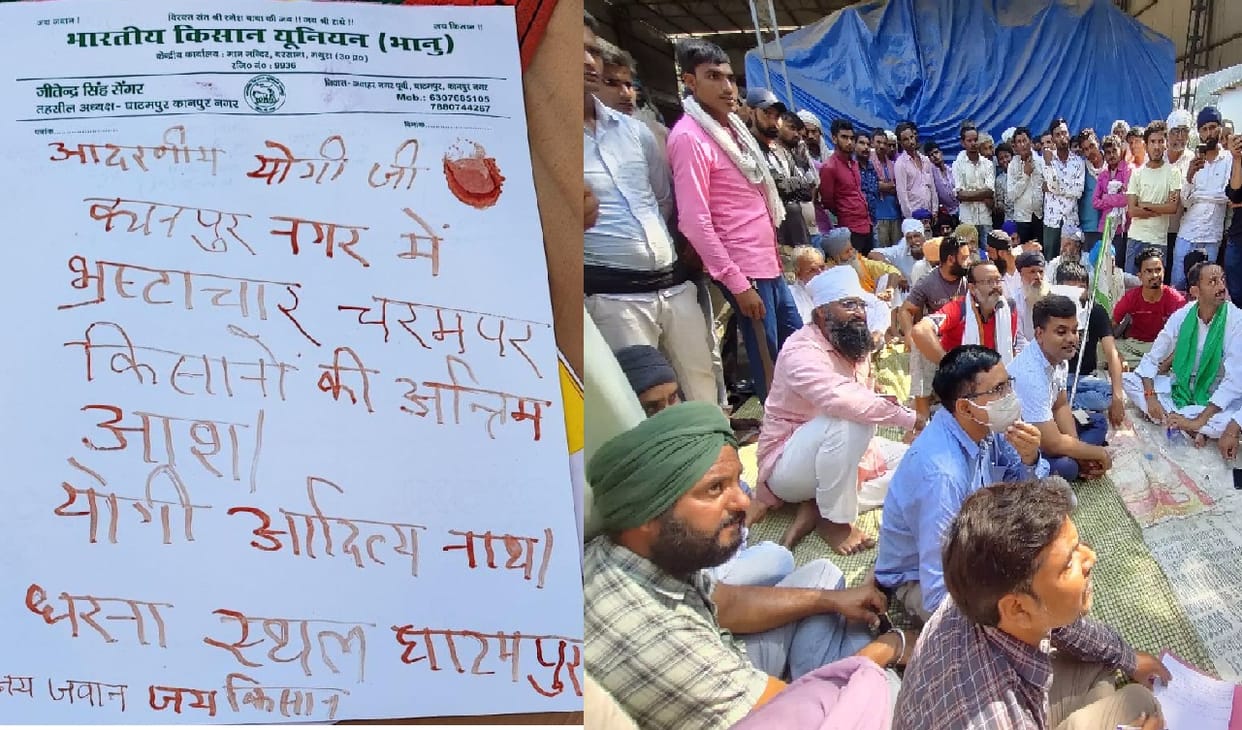 जय जवान !
विरक्त संत श्री रमेश बाबा की जय !! जय श्री राधे !!
जय किसान !!
भारतीय किसान यूनियन (भानु)
केन्द्रीय कार्यालय : मान मन्दिर, बरसाना, मथुरा (उ०प्र०)
रजि० नं० : 9936
जीतेन्द्र सिंह सेंगर
तहसील अध्यक्ष- घाटमपुर कानपुर नगर
निवास- जवाहर नगर पूर्वी, घाटमपुर, कानपुर नगर
Mob.: 6307665105
7880744267
पत्रांक
दिनांक
आदरणीय योगी जी
कानपुर नगर में
भ्रस्टाचार चरमपर
किसानों की अन्तिम
आशा
योगी आदित्य नाथ।
धरना स्थल घाटमपुर
जय जवान जय किसान